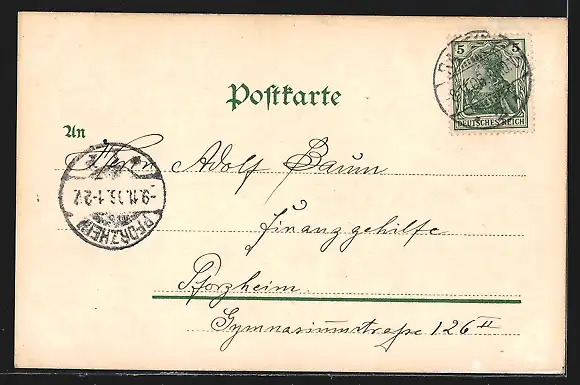 5 5
DEUTSCHES REICH
Postkarte
An
Herrn Adolf Baum
Finanzgehilfe
Pforzheim
Gymnasiumstraße 126 II
PFORZHEIM
-9.11.05.1-2N.